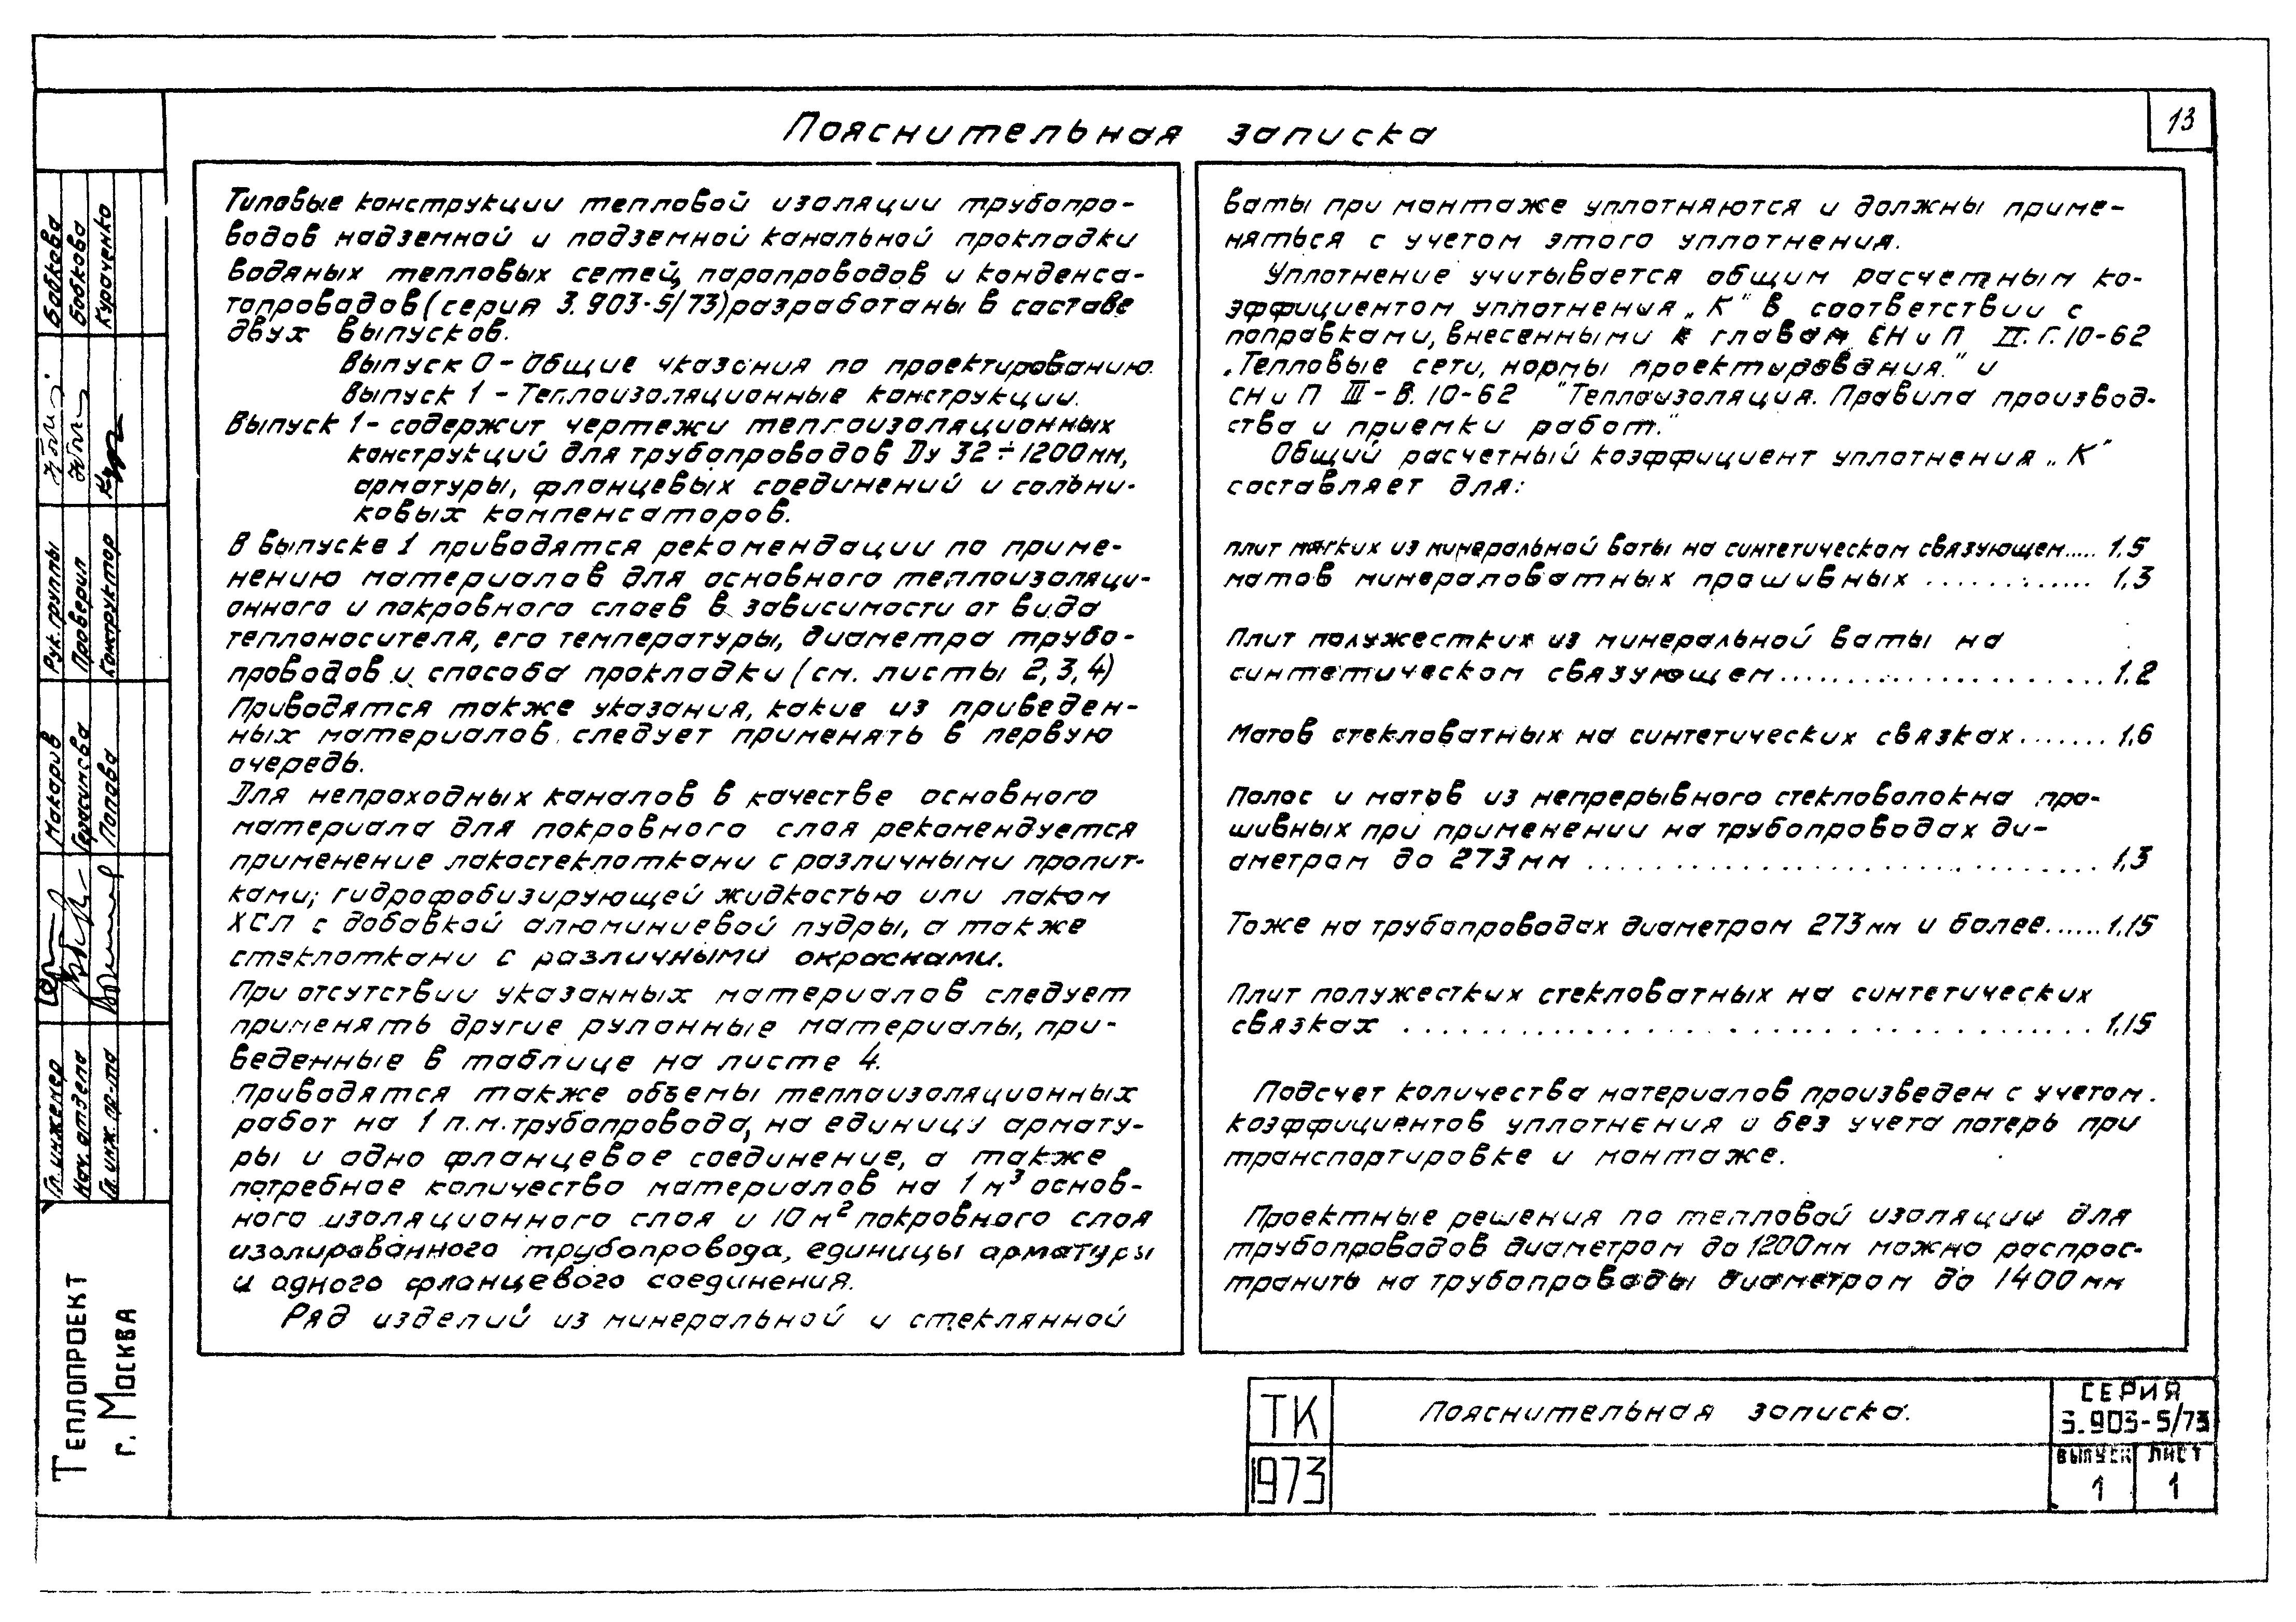 13
Пояснительная записка
Типовые конструкции тепловой изоляции трубопро-
водов надземной и подземной канальной прокладки
водяных тепловых сетей, паропроводов и конденса-
топроводов (серия 3.903-5/73) разработаны в составе
двух выпусков.
Выпуск 0 - Общие указания по проектированию.
Выпуск 1 - Теплоизоляционные конструкции.
Выпуск 1 - содержит чертежи теплоизоляционных
конструкций для трубопроводов Ду 32÷1200мм,
арматуры, фланцевых соединений и сальни-
ковых компенсаторов.
В выпуске 1 приводятся рекомендации по приме-
нению материалов для основного теплоизоляци-
онного и покровного слоев в зависимости от вида
теплоносителя, его температуры, диаметра трубо-
проводов и способа прокладки (см. листы 2,3,4)
Приводятся также указания, какие из приведен-
ных материалов следует применять в первую
очередь.
Для непроходных каналов в качестве основного
материала для покровного слоя рекомендуется
применение лакостеклоткани с различными пропит-
ками; гидрофобизирующей жидкостью или лаком
ХСЛ с добавкой алюминиевой пудры, а также
стеклоткани с различными окрасками.
При отсутствии указанных материалов следует
применять другие рулонные материалы, при-
веденные в таблице на листе 4.
Приводятся также объемы теплоизоляционных
работ на 1 п.м. трубопровода, на единицу армату-
ры и одно фланцевое соединение, а также
потребное количество материалов на 1 м³ основ-
ного изоляционного слоя и 10м² покровного слоя
изолированного трубопровода, единицы арматуры
и одного фланцевого соединения.
Ряд изделий из минеральной и стеклянной
ваты при монтаже уплотняются и должны приме-
няться с учетом этого уплотнения.
Уплотнение учитывается общим расчетным ко-
эффициентом уплотнения „К" в соответствии с
поправками, внесенными к главам СНиП II.Г.10-62
„Тепловые сети, нормы проектирования." и
СНиП III-В.10-62 "Теплоизоляция. Правила производ-
ства и приемки работ."
Общий расчетный коэффициент уплотнения „К"
составляет для:
плит мягких из минеральной ваты на синтетическом связующем..... 1,5
матов минераловатных прошивных ............ 1,3
Плит полужестких из минеральной ваты на
синтетическом связующем..................... 1,2
Матов стекловатных на синтетических связках....... 1,6
Полос и матов из непрерывного стекловолокна про-
шивных при применении на трубопроводах ди-
аметром до 273мм ............................... 1,3
Тоже на трубопроводах диаметром 273мм и более...... 1,15
Плит полужестких стекловатных на синтетических
связках ........................................ 1,15
Подсчет количества материалов произведен с учетом
коэффициентов уплотнения и без учета потерь при
транспортировке и монтаже.
Проектные решения по тепловой изоляции для
трубопроводов диаметром до 1200мм можно распрос-
транить на трубопроводы диаметром до 1400мм
ТК
1973
Пояснительная записка.
СЕРИЯ
3.903-5/73
ВЫПУСК ЛИСТ
1 1
Бабкова
Бабкова
Кураченко
Рук. группы
Проверил
Конструктор
Макаров
Герасимова
Попова
Гл. инженер
Нач. отдела
Гл. инж. пр-та
ТЕПЛОПРОЕКТ
г. МОСКВА